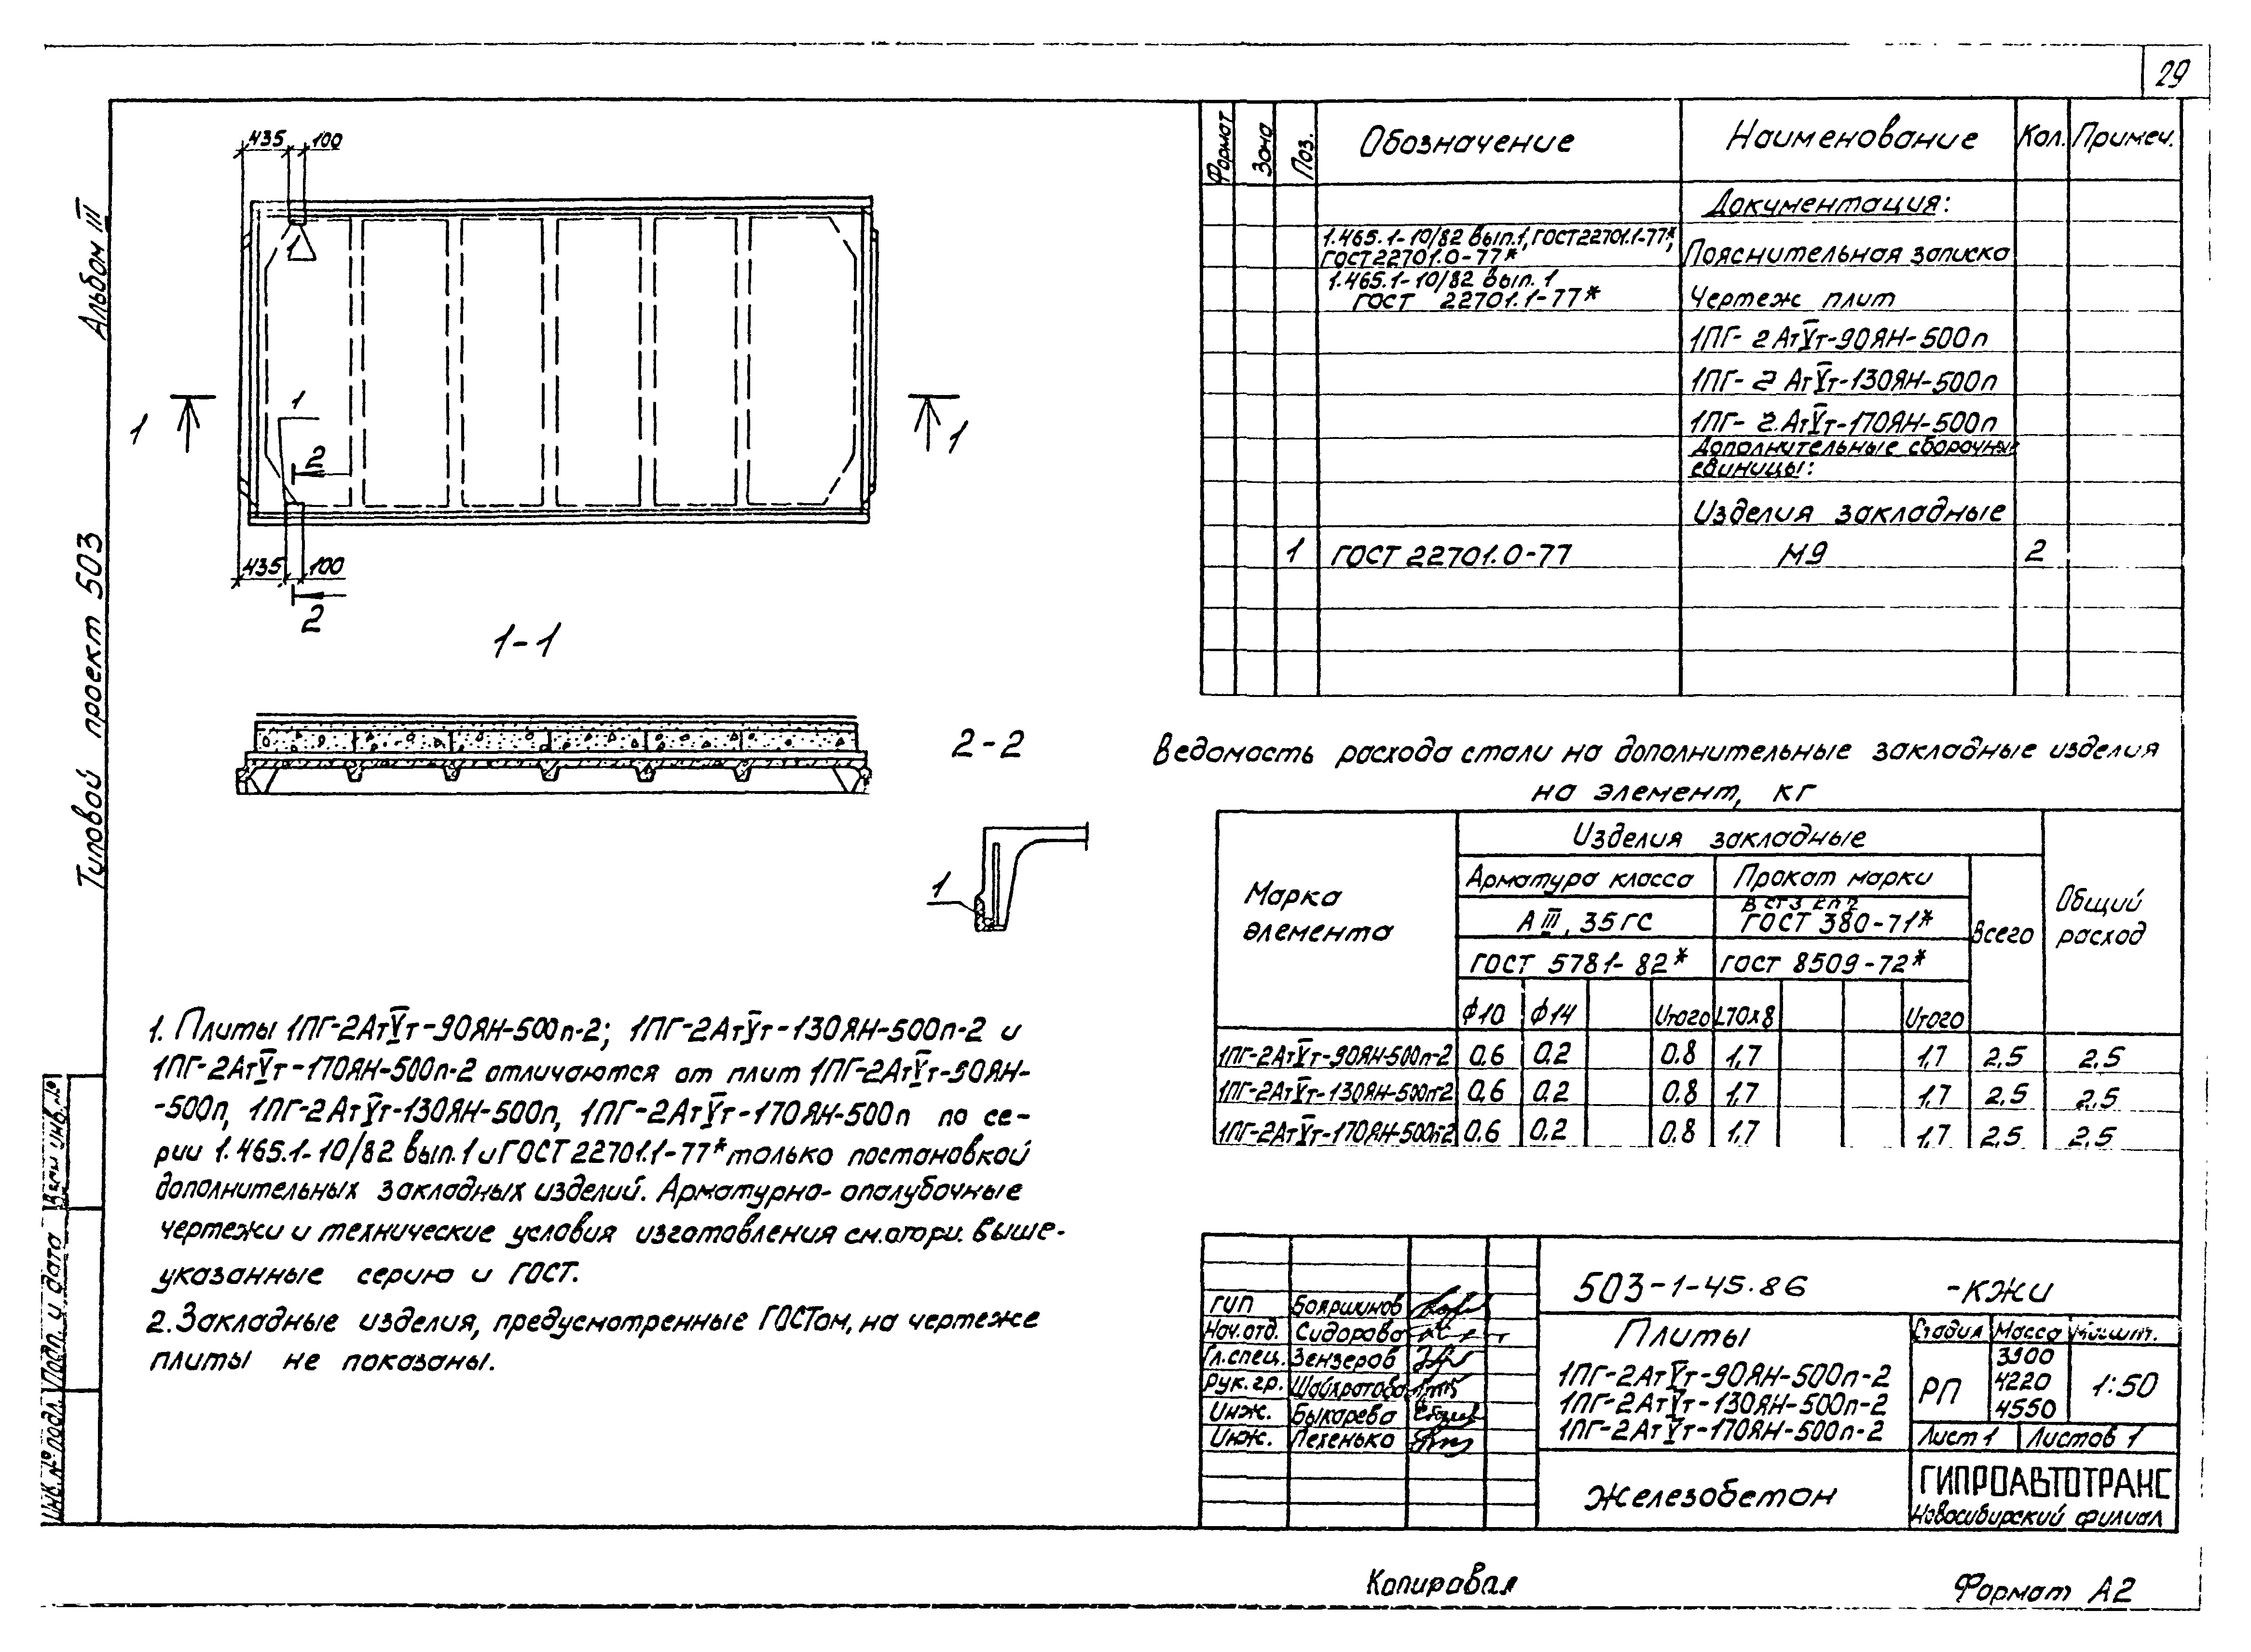 29
Альбом III
Типовой проект 503
Взам инв. №
Подп. и дата
Инв. № подл.
435 100
1
1 1
1
2
435 100
2
1-1
2-2
1
1. Плиты 1ПГ-2АтVт-90ЯН-500п-2; 1ПГ-2АтVт-130ЯН-500п-2 и
1ПГ-2АтVт-170ЯН-500п-2 отличаются от плит 1ПГ-2АтVт-90ЯН-
-500п, 1ПГ-2АтVт-130ЯН-500п, 1ПГ-2АтVт-170ЯН-500п по се-
рии 1.465.1-10/82 вып.1 и ГОСТ 22701.1-77* только постановкой
дополнительных закладных изделий. Арматурно-опалубочные
чертежи и технические условия изготовления смотри. выше-
указанные серию и ГОСТ.
2. Закладные изделия, предусмотренные ГОСТом, на чертеже
плиты не показаны.
Формат Зона Поз. Обозначение Наименование Кол. Примеч.
Документация:
1.465.1-10/82 вып.1, ГОСТ 22701.1-77*,
ГОСТ 22701.0-77* Пояснительная записка
1.465.1-10/82 вып. 1
ГОСТ 22701.1-77* Чертеж плит
1ПГ-2АтVт-90ЯН-500п
1ПГ-2АтVт-130ЯН-500п
1ПГ-2.АтVт-170ЯН-500п
Дополнительные сборочные
единицы:
Изделия закладные
1 ГОСТ 22701.0-77 М9 2
Ведомость расхода стали на дополнительные закладные изделия
на элемент, кг
Марка элемента
Изделия закладные
Общий расход
Арматура класса Прокат марки
Всего
АIII, 35ГС ВСт3 кп2 ГОСТ 380-71*
ГОСТ 5781-82* ГОСТ 8509-72*
ф10 ф14 Итого L70х8 Итого
1ПГ-2АтVт-90ЯН-500п-2 0,6 0.2 0.8 1,7 1,7 2,5 2,5
1ПГ-2АтVт-130ЯН-500п-2 0,6 0.2 0.8 1,7 1,7 2,5 2,5
1ПГ-2АтVт-170ЯН-500п-2 0,6 0.2 0,8 1,7 1,7 2,5 2,5
503-1-45.86 -КЖИ
ГИП Бояршинов
Нач.отд. Сидорова
Гл.спец. Зензеров
Рук.гр.
Инж. Быкарева
Инж. Лехенько
Плиты
1ПГ-2АтVт-90ЯН-500п-2
1ПГ-2АтVт-130ЯН-500п-2
1ПГ-2АтVт-170ЯН-500п-2
Стадия Масса Масшт.
РП
3900
4220
4550
1:50
Лист 1 Листов 1
Железобетон
ГИПРОАВТОТРАНС
Новосибирский филиал
Копировал
Формат А2